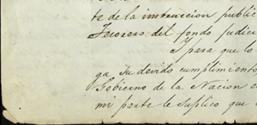 te de la instruccion public
Tesorero del fondo judici
I para que lo
ga su devido cumplimiento
Gobierno de la Nacion e
mi parte le Suplico que